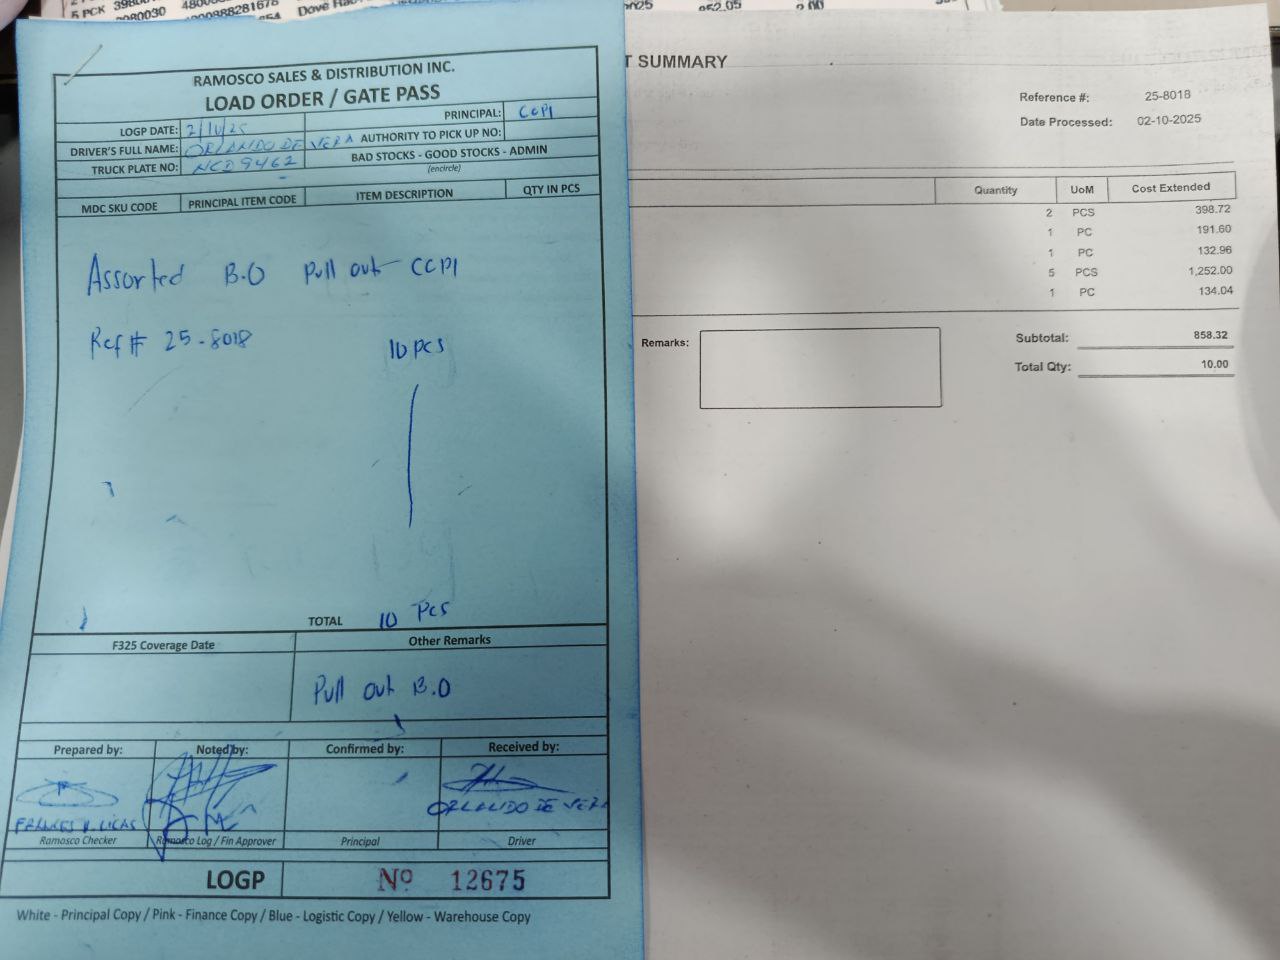 5 PCK
0080030
Dove
2025
852.05
RAMOSCO SALES & DISTRIBUTION INC.
LOAD ORDER / GATE PASS
PRINCIPAL: CCPI
LOGP DATE: 2/10/25
AUTHORITY TO PICK UP NO:
DRIVER'S FULL NAME: ORLANDO DE VERA
BAD STOCKS - GOOD STOCKS - ADMIN
(encircle)
TRUCK PLATE NO: NCD9462
MDC SKU CODE PRINCIPAL ITEM CODE ITEM DESCRIPTION QTY IN PCS
Assorted B.O Pull out CCPI
Ref # 25-8018 10 pcs
TOTAL 10 Pcs
F325 Coverage Date Other Remarks
Pull out B.O
Prepared by: Noted by: Confirmed by: Received by:
FRANCES V. LICAS ORLANDO DE VERA
Ramosco Checker Ramosco Log / Fin Approver Principal Driver
LOGP Nº 12675
White - Principal Copy / Pink - Finance Copy / Blue - Logistic Copy / Yellow - Warehouse Copy
T SUMMARY
Reference #: 25-8018
Date Processed: 02-10-2025
Quantity UoM Cost Extended
2 PCS 398.72
1 PC 191.60
1 PC 132.96
5 PCS 1,252.00
1 PC 134.04
Remarks:
Subtotal: 858.32
Total Qty: 10.00